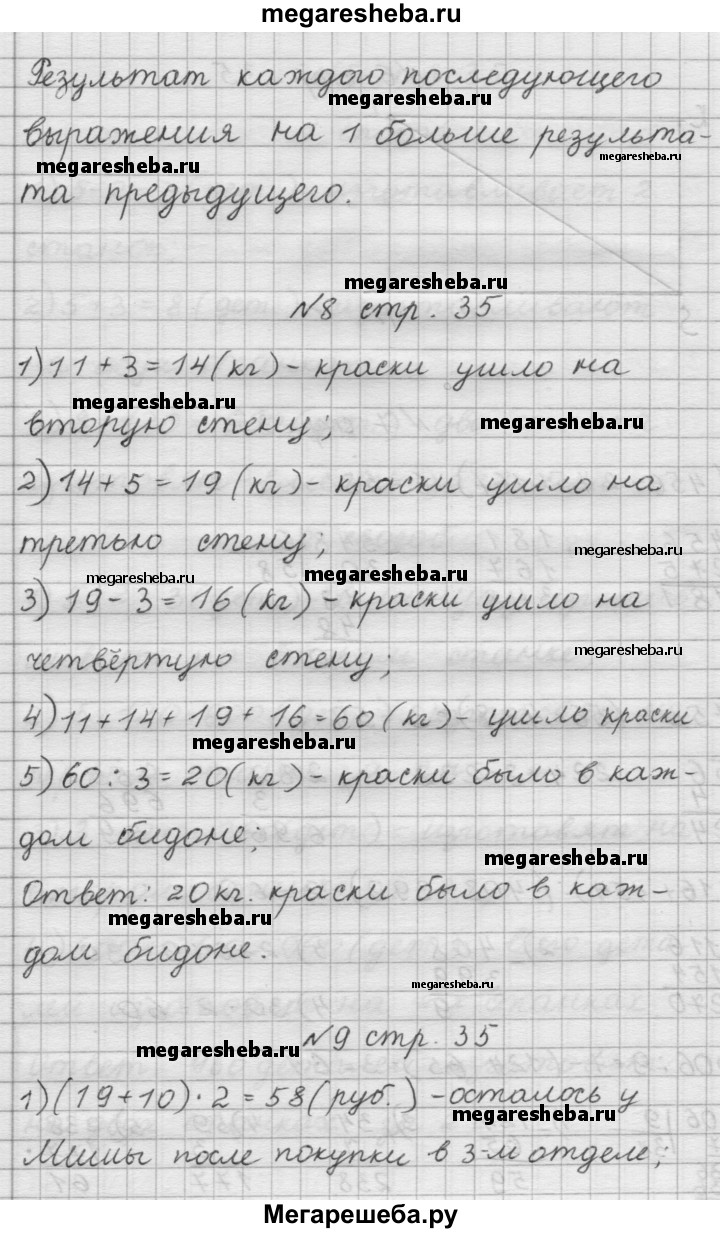 megaresheba.ru
Результат каждого последующего
megaresheba.ru
выражения на 1 больше результа-
megaresheba.ru
megaresheba.ru
та предыдущего.
megaresheba.ru
№8 стр. 35
1) 11 + 3 = 14 (кг) - краски ушло на
megaresheba.ru
вторую стену;
megaresheba.ru
2) 14 + 5 = 19 (кг) - краски ушло на
третью стену;
megaresheba.ru
megaresheba.ru
megaresheba.ru
3) 19 - 3 = 16 (кг) - краски ушло на
четвёртую стену;
megaresheba.ru
4) 11 + 14 + 19 + 16 = 60 (кг) - ушло краски
megaresheba.ru
5) 60 : 3 = 20 (кг) - краски было в каж-
дом бидоне;
megaresheba.ru
Ответ: 20 кг. краски было в каж-
megaresheba.ru
дом бидоне.
megaresheba.ru
№9 стр. 35
megaresheba.ru
1) (19 + 10) · 2 = 58 (руб.) - осталось у
megaresheba.ru
Мишы после покупки в 3-м отделе;
Мегарешеба.ру